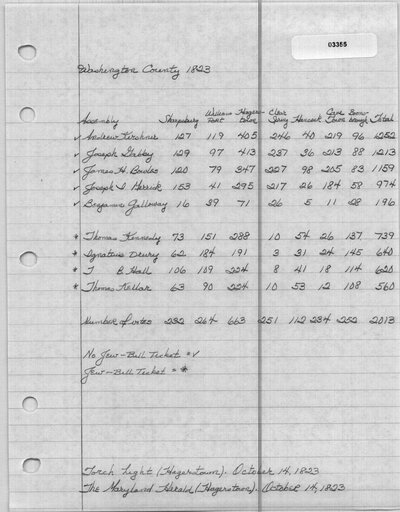 03355
Washington County 1823
Assembly Sharpsburg Williams Port Hagers-town Clear Spring Hancock Cave Town Boons-borough Total
✓ Andrew Kershner 127 119 405 246 40 219 96 1252
✓ Joseph Gabby 129 97 413 237 36 213 88 1213
✓ James H. Bowles 120 79 347 227 98 205 83 1159
✓ Joseph I Merrick 153 41 295 217 26 184 58 974
✓ Benjamin Galloway 16 39 71 26 5 11 28 196
* Thomas Kennedy 73 151 288 10 54 26 137 739
* Ignatius Drury 62 184 191 3 31 24 145 640
* T B Hall 106 109 224 8 41 18 114 620
* Thomas Kellar 63 90 224 10 53 12 108 560
Number of votes 232 264 663 251 112 234 252 2013
No Jew-Bill Ticket = ✓
Jew-Bill Ticket = *
Torch Light (Hagerstown). October 14, 1823
The Maryland Herald (Hagerstown). October 14, 1823